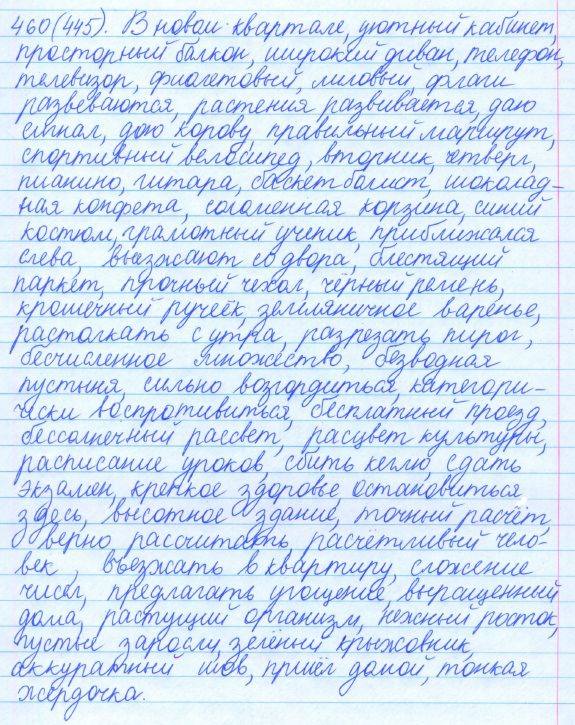 460(445). В новом квартале, уютный кабинет,
просторный балкон, широкий диван, телефон,
телевизор, фиолетовый, лиловый флаги
развеваются, растения развивается, даю
сигнал, дою корову, правильный маршрут,
спортивный велосипед, вторник, четверг,
пианино, гитара, баскетболист, шоколад-
ная конфета, соломенная корзина, синий
костюм, грамотный ученик, приближался
слева, выезжают со двора, блестящий
паркет, прочный чехол, чёрный ремень,
крошечный ручеёк, земляничное варенье,
растолкать с утра, разрезать пирог,
бесчисленное множество, безводная
пустыня, сильно возгордиться, категори-
чески воспротивиться, бесплатный проезд,
бессолнечный рассвет, расцвет культуры,
расписание уроков, сбить кеглю, сдать
экзамен, крепкое здоровье, остановиться
здесь, высотное здание, точный расчёт,
верно рассчитать, расчётливый чело-
век, въезжать в квартиру, сложение
чисел, предлагать угощение, выращенный
дома, растущий организм, нежный росток,
густые заросли, зелёный крыжовник,
аккуратный шов, пришёл домой, тонкая
жёрдочка.